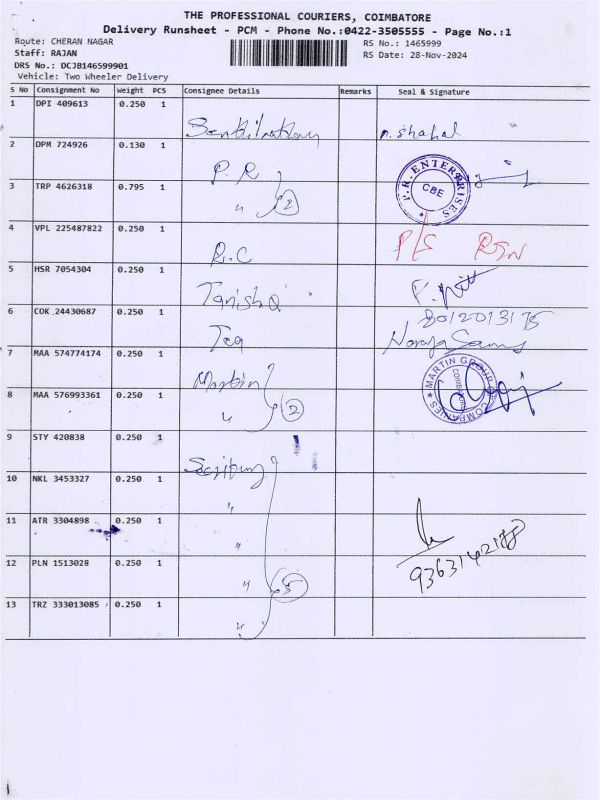 THE PROFESSIONAL COURIERS, COIMBATORE
Delivery Runsheet - PCM - Phone No.:0422-3505555 - Page No.:1
Route: CHERAN NAGAR
RS No.: 1465999
Staff: RAJAN
RS Date: 28-Nov-2024
DRS No.: DCJB146599901
Vehicle: Two Wheeler Delivery
S No Consignment No Weight PCS Consignee Details Remarks Seal & Signature
1 DPI 409613 0.250 1
2 DPM 724926 0.130 1 P.R
3 TRP 4626318 0.795 1 " 2
P.R. ENTERPRISES CBE
4 VPL 225487822 0.250 1 R.C
5 HSR 7054304 0.250 1 Tanisha
6 COK 24430687 0.250 1 Tea
7 MAA 574774174 0.250 1 Martin
8 MAA 576993361 0.250 1 " 2
MARTIN GROUP OF COMPANIES COIMBATORE
9 STY 420838 0.250 1
10 NKL 3453327 0.250 1 "
11 ATR 3304898 0.250 1 "
12 PLN 1513028 0.250 1 " 5
13 TRZ 333013085 0.250 1 "